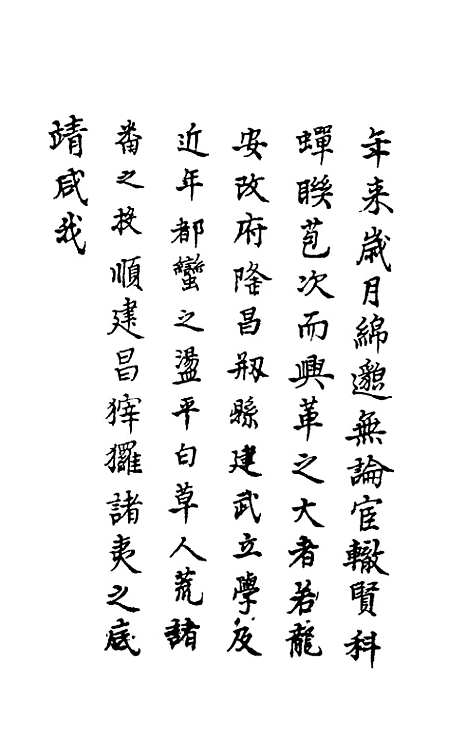 年来歳月綿邈無論宦轍賢科
蟬聨苞次而興革之大者若龍
安改府隆昌剏縣建武立學及
近年都蠻之盪平白草人荒諸
番之投順建昌猓玀諸夷之底
靖咸我